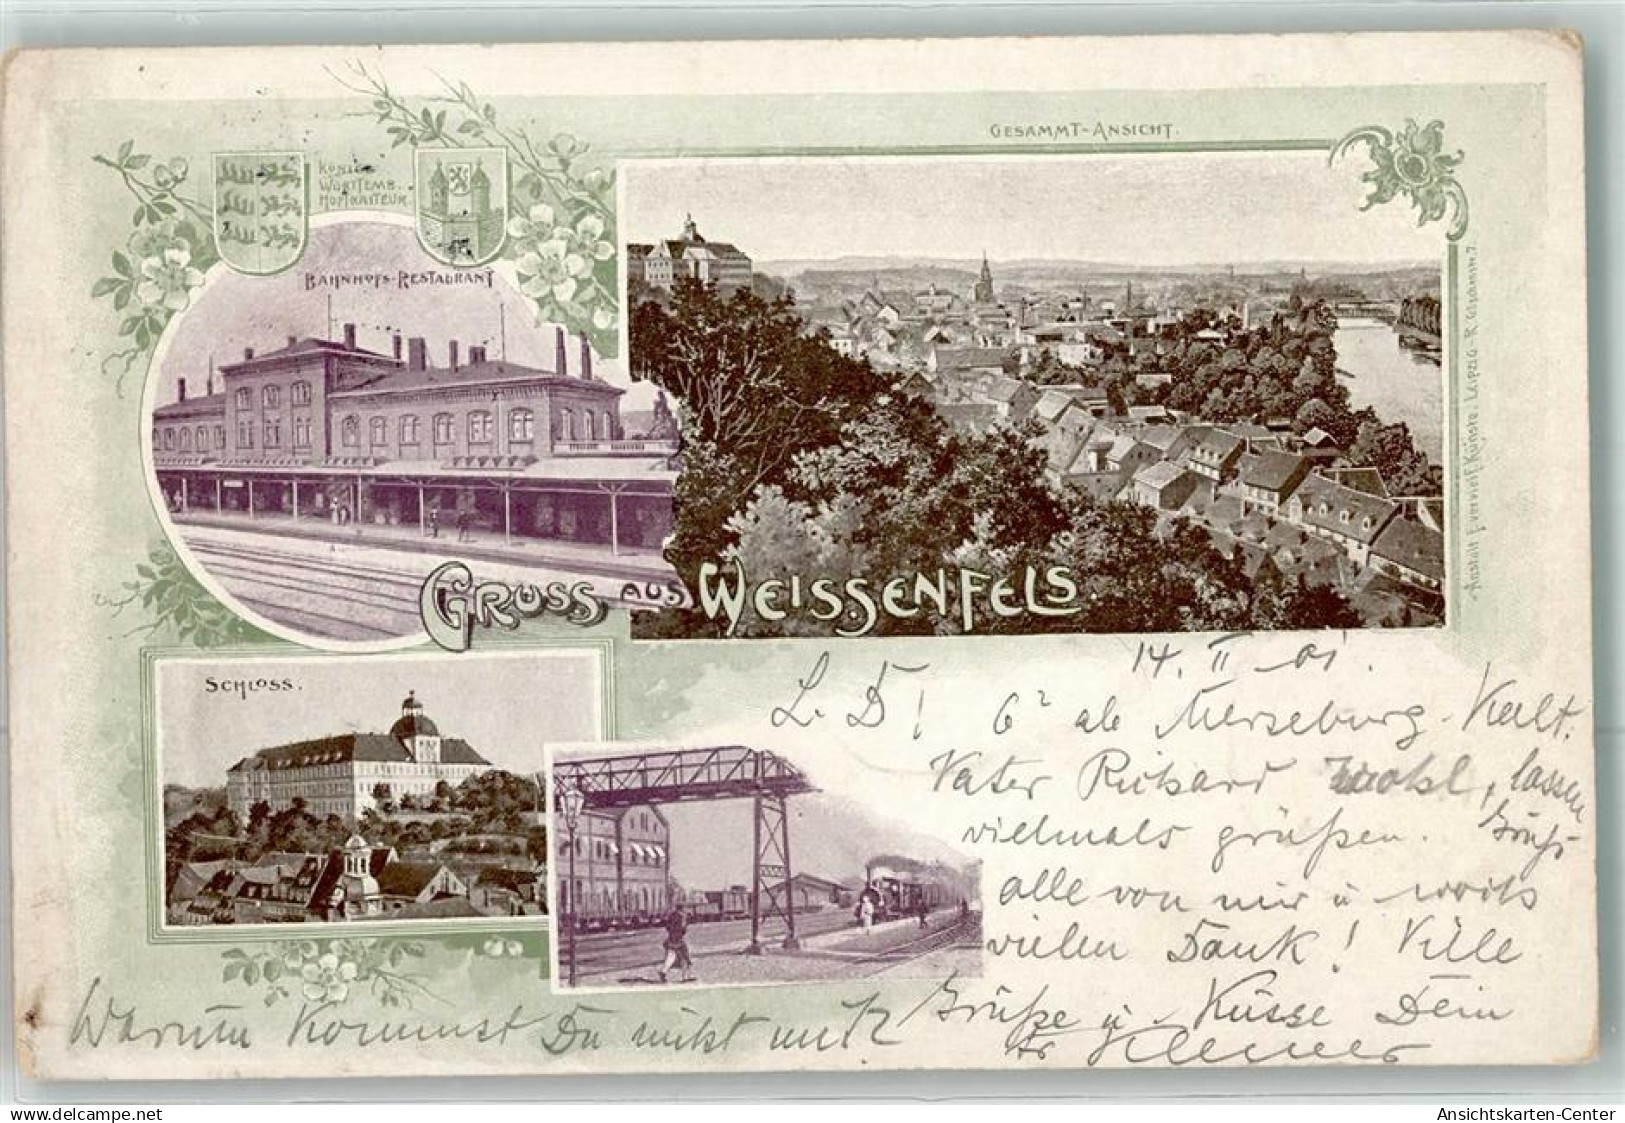 GESAMMT-ANSICHT.
KÖNIGL.
WÜRTTEMB.
HOFTRAITEUR.
BAHNHOFS-RESTAURANT
GRUSS AUS WEISSENFELS.
SCHLOSS.
LEIPZIG-R.
14. II 01.
L. D! 6² ab Merseburg. Kalt.
Vater Richard lassen
vielmals grüßen.
alle von mir u
vielen Dank! Viele
Grüße u. Küsse Dein
Warum kommst Du nicht mit?
delcampe.net
Ansichtskarten-Center